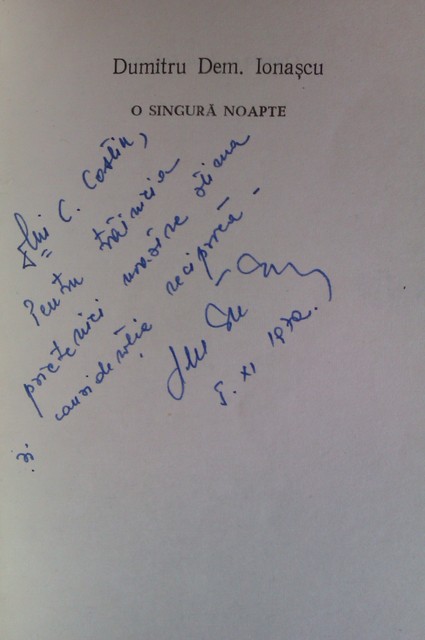 Dumitru Dem. Ionașcu
O SINGURĂ NOAPTE
Lui C. Costin,
Pentru trăinicia
prieteniei noastre stima
și considerație reciprocă -
5. XI 1972.